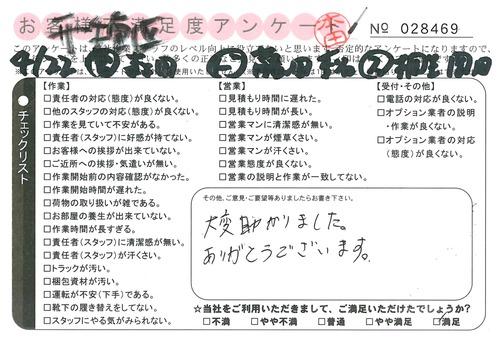 お客様満足度アンケート
№ 028469
チェックリスト
【作業】
□責任者の対応(態度)が良くない。
□他のスタッフの対応(態度)が良くない。
□作業を見ていて不安がある。
□責任者(スタッフ)に好感が持てない。
□お客様への挨拶が出来ていない。
□ご近所への挨拶・気遣いが無い。
□作業開始前の内容確認がなかった。
□作業開始時間が遅れた。
□荷物の取り扱いが雑である。
□お部屋の養生が出来ていない。
□作業時間が長すぎる。
□責任者(スタッフ)に清潔感が無い。
□責任者(スタッフ)が汗くさい。
□トラックが汚い。
□梱包資材が汚い。
□運転が不安(下手)である。
□靴下の履き替えをしてない。
□スタッフにやる気がみられない。
【営業】
□見積もり時間に遅れた。
□見積もり時間が長い。
□営業マンに清潔感が無い。
□営業マンが煙草くさい。
□営業マンが汗くさい。
□営業態度が良くない。
□営業の説明と作業が一致してない。
【受付・その他】
□電話の対応が良くない。
□オプション業者の説明
・作業が良くない。
□オプション業者の対応
(態度)が良くない。
その他、ご意見・ご要望等ありましたらお書き下さい。
大変助かりました。
ありがとうございます。
☆当社をご利用いただきまして、ご満足いただけたでしょうか?
□不満 □やや不満 □普通 □やや満足 □満足